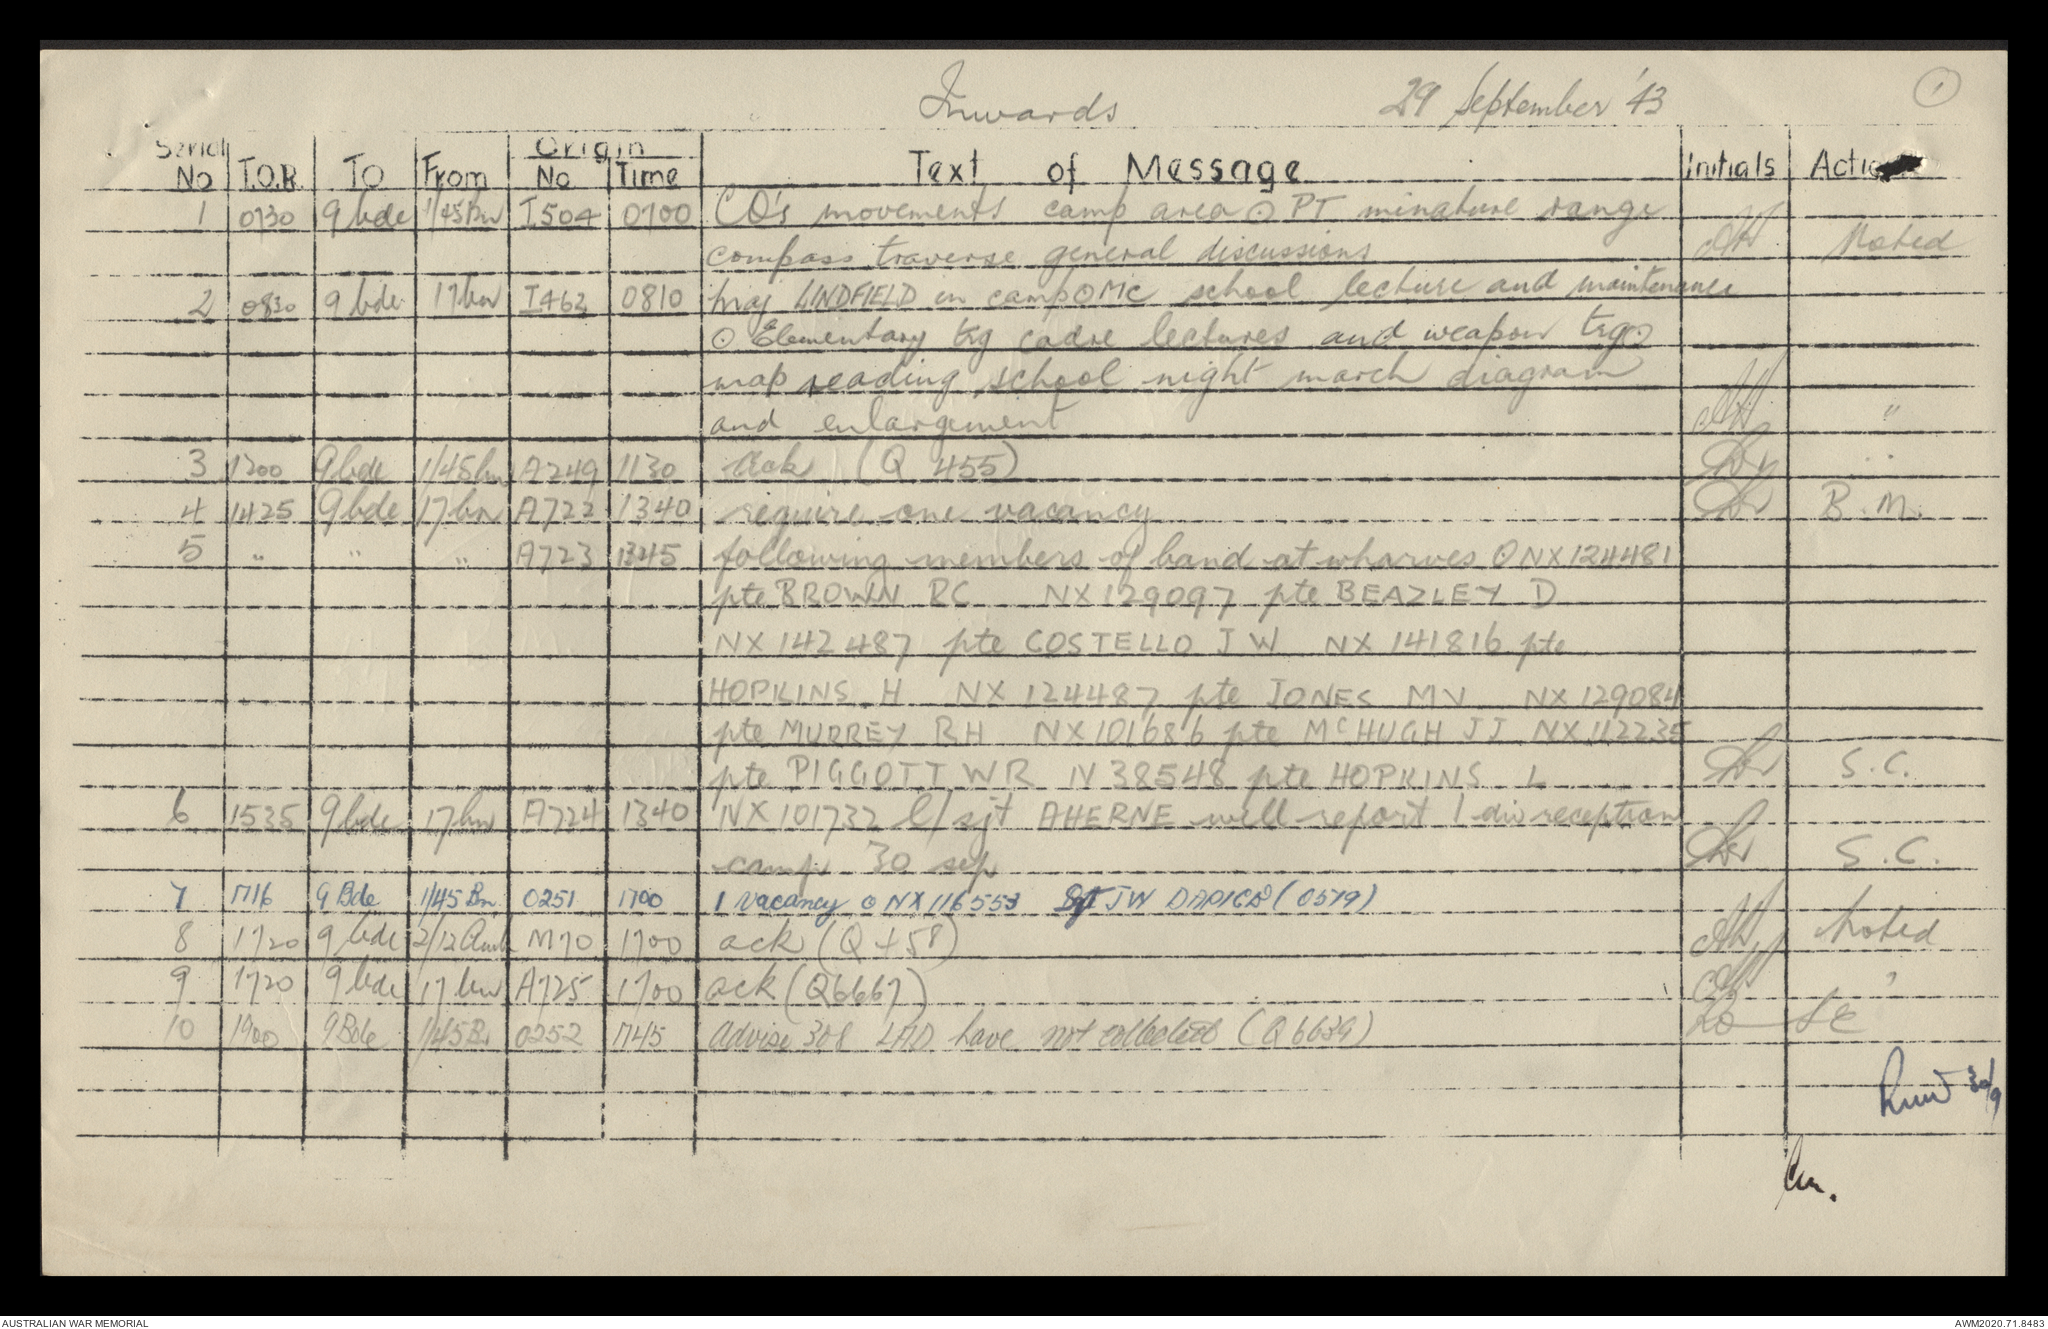 Inwards 29 September '43 1
Serial No T.O.R. TO From Origin No Time Text of Message Initials Action
1 0730 9 bde 1/45 Bn I504 0700 CO's movements camp area ⊙ PT minature range
compass traverse general discussions Noted
2 0830 9 bde 17 bn I462 0810 Maj LINDFIELD in camp ⊙ MC school lecture and maintenance
⊙ Elementary trg cadre lectures and weapon trg ⊙
map reading school night march diagram
and enlargement "
3 1200 9 bde 1/45 bn A249 1130 ack (Q 455) "
4 1425 9 bde 17 bn A722 1340 require one vacancy B.M.
5 " " " A723 1345 following members of band at wharves ⊙ NX124481
pte BROWN RC NX129097 pte BEAZLEY D
NX142487 pte COSTELLO J W NX 141816 pte
HOPKINS H NX 124487 pte JONES MV NX 129084
pte MURREY RH NX101686 pte McHUGH JJ NX112235
pte PIGGOTT WR N38548 pte HOPKINS L S.C.
6 1535 9 bde 17 bn A724 1340 NX101732 l/sjt AHERNE will report 1 div reception
camp 30 sep S.C.
7 1716 9 Bde 1/45 Bn 0251 1700 1 vacancy ⊙ NX116553 Sjt JW (0579)
8 1720 9 bde 2/12 Amb M70 1700 ack (Q 458) Noted
9 1720 9 bde 17 bn A725 1700 ack (Q6667) "
10 1900 9 Bde 1/45 Bn 0252 1745 Advise 308 LAD have not collected (Q6639) SC
30/9
AUSTRALIAN WAR MEMORIAL AWM2020.71.8483